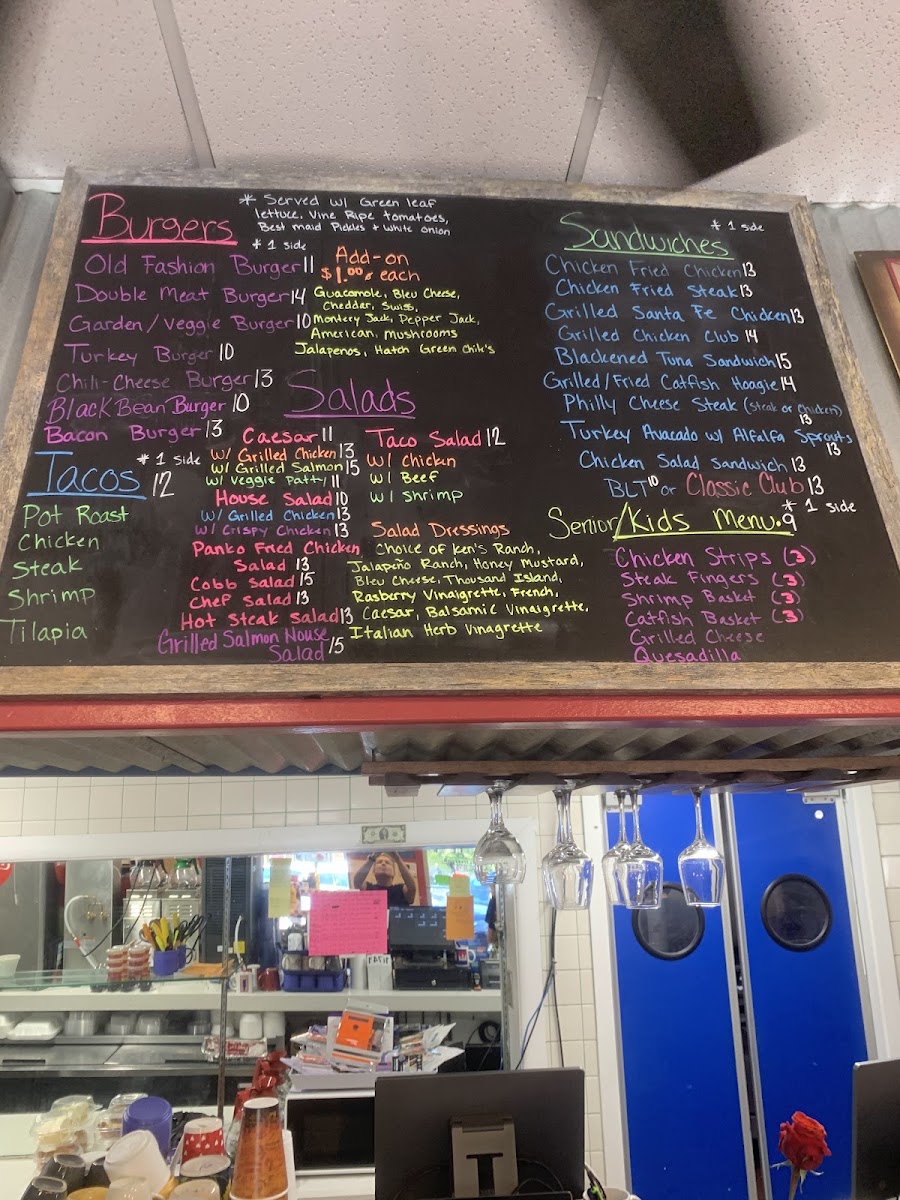 Burgers
* Served w/ Green leaf
lettuce, Vine Ripe tomatoes,
Best maid Pickles + white onion
* 1 side
Old Fashion Burger 11
Double Meat Burger 14
Garden/Veggie Burger 10
Turkey Burger 10
Chili-Cheese Burger 13
Black Bean Burger 10
Bacon Burger 13
Add-on
$1.00 each
Guacamole, Bleu Cheese,
Cheddar, Swiss,
Montery Jack, Pepper Jack,
American, Mushrooms
Jalapenos, Hatch Green Chile's
Tacos
* 1 side
12
Pot Roast
Chicken
Steak
Shrimp
Tilapia
Salads
Caesar 11
w/ Grilled Chicken 13
w/ Grilled Salmon 15
w/ Veggie Patty 11
House Salad 10
w/ Grilled Chicken 13
w/ Crispy Chicken 13
Panko Fried Chicken
Salad 13
Cobb Salad 15
Chef Salad 13
Hot Steak Salad 13
Grilled Salmon House
Salad 15
Taco Salad 12
w/ Chicken
w/ Beef
w/ Shrimp
Salad Dressings
Choice of Ken's Ranch,
Jalapeño Ranch, Honey Mustard,
Bleu Cheese, Thousand Island,
Rasberry Vinaigrette, French,
Caesar, Balsamic Vinaigrette,
Italian Herb Vinagrette
Sandwiches
* 1 side
Chicken Fried Chicken 13
Chicken Fried Steak 13
Grilled Santa Fe Chicken 13
Grilled Chicken Club 14
Blackened Tuna Sandwich 15
Grilled/Fried Catfish Hoagie 14
Philly Cheese Steak (Steak or Chicken)
13
Turkey Avacado w/ Alfalfa Sprouts
13
Chicken Salad Sandwich 13
BLT 10 or Classic Club 13
Senior/Kids Menu. 9
* 1 side
Chicken Strips (3)
Steak Fingers (3)
Shrimp Basket (3)
Catfish Basket (3)
Grilled Cheese
Quesadilla